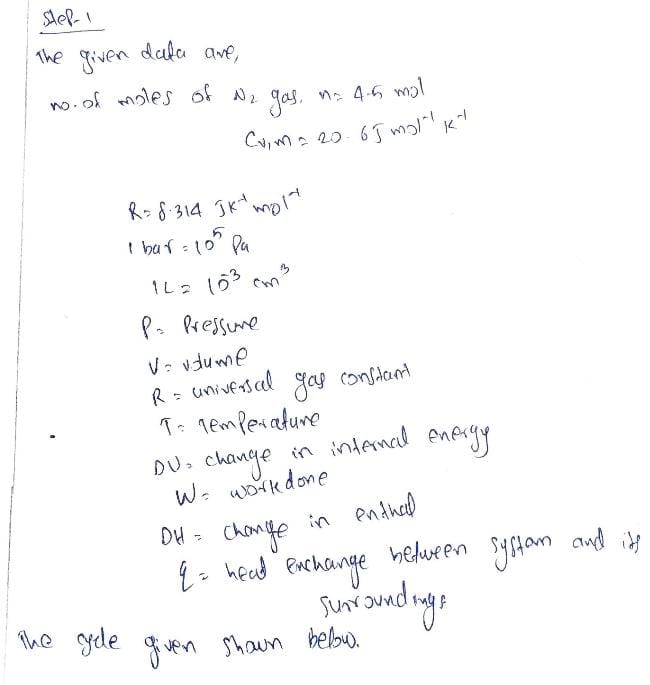 Step-1
The given data are,
no. of moles of N2 gas, n= 4.5 mol
Cv,m = 20.6 J mol⁻¹ K⁻¹
R= 8.314 JK⁻¹ mol⁻¹
1 bar = 10⁵ Pa
1L = 10⁻³ cm³
P= Pressure
V= volume
R= universal gas constant
T= Temperature
DU= change in internal energy
W= work done
DH= change in enthal
q= heat exchange between system and its
surroundings
The cycle given shown below.